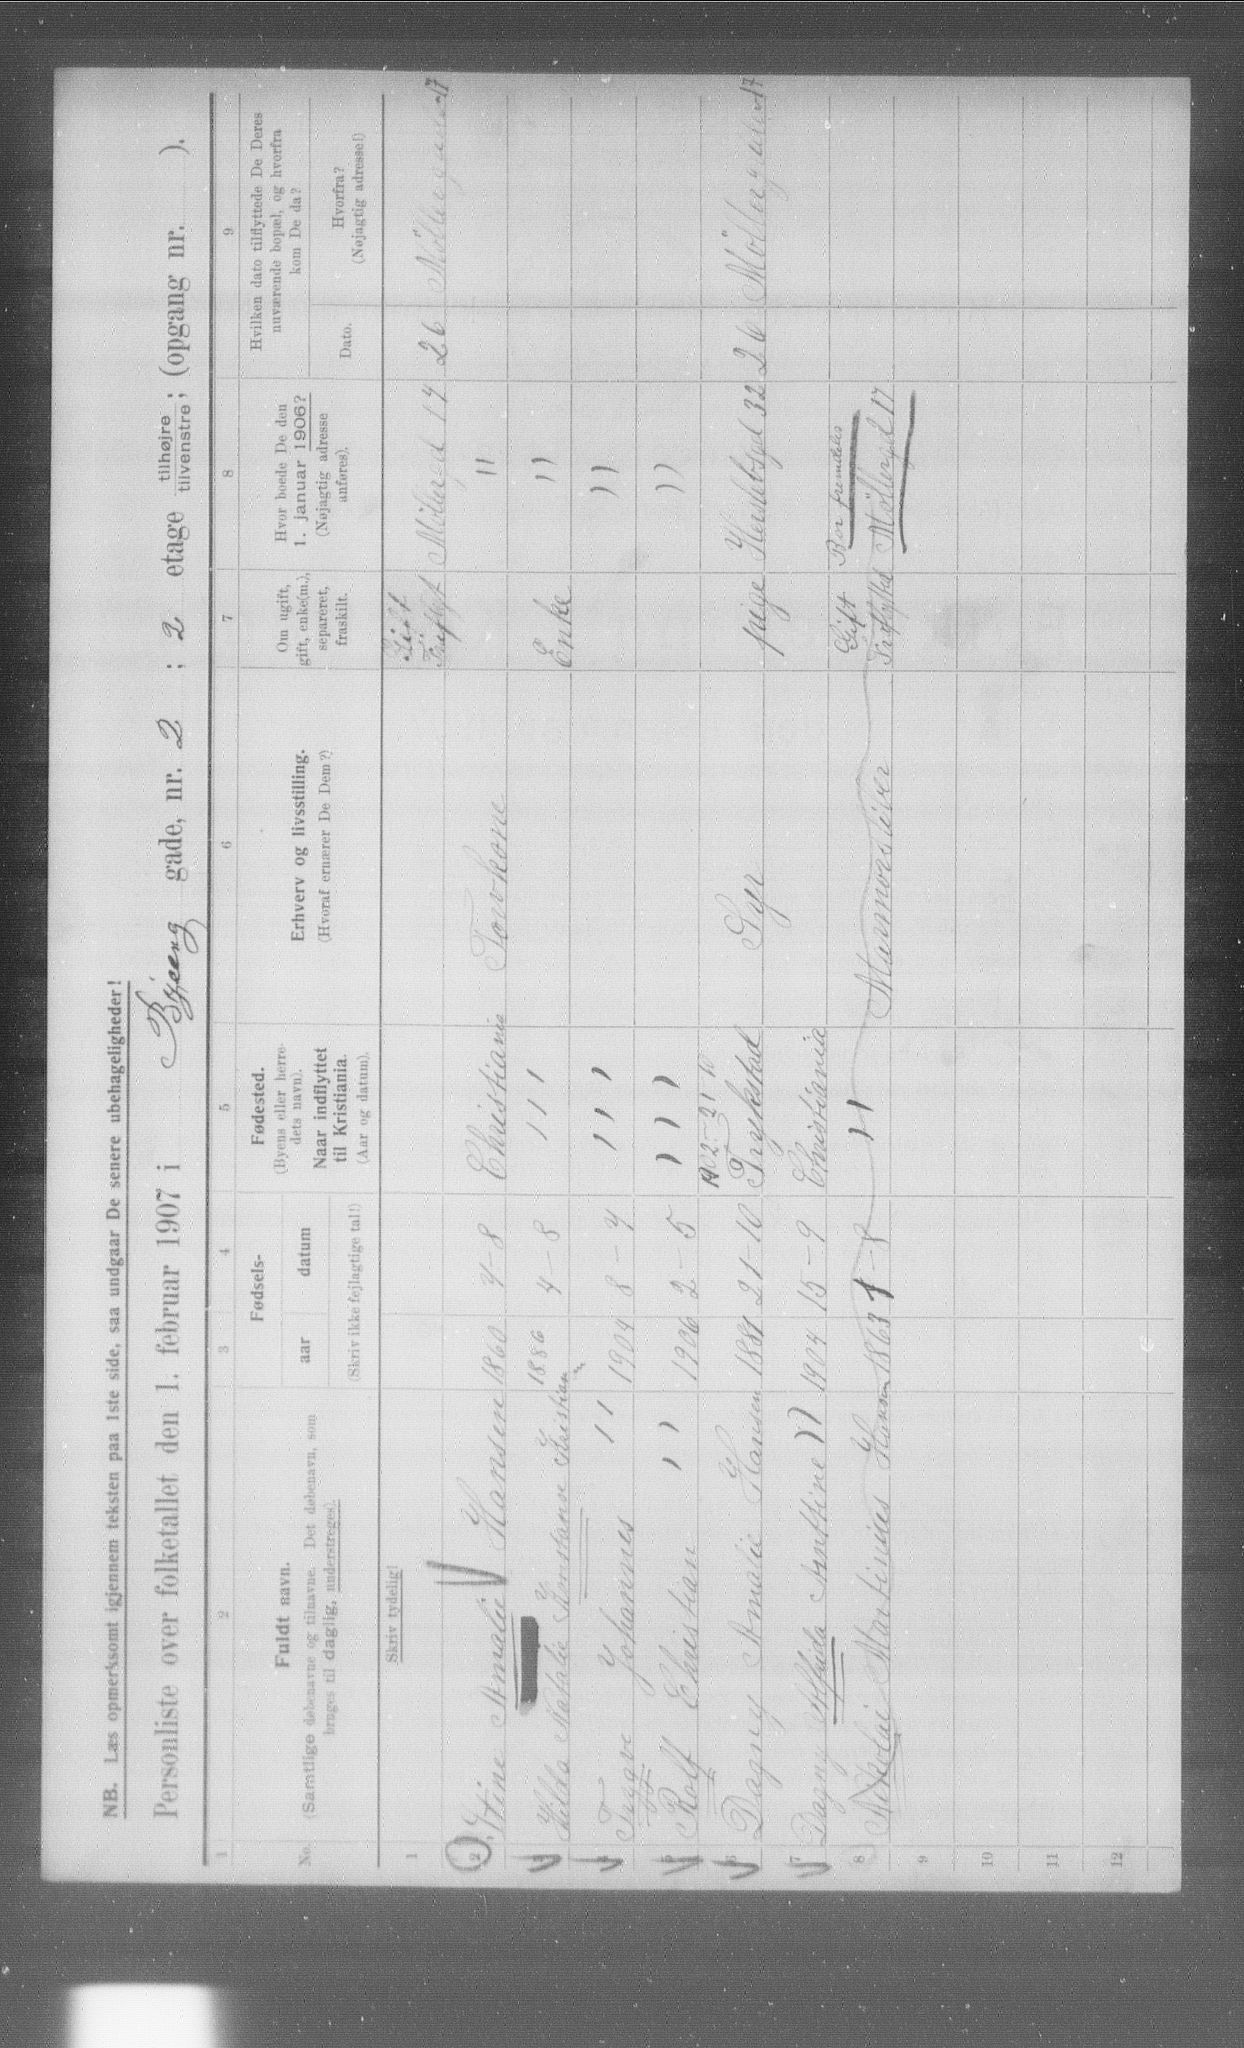 NB. Læs opmerksomt igjennem teksten paa 1ste side, saa undgaar De senere ubehageligheder!
Personliste over folketallet den 1. februar 1907 i Byeng gade, nr. 2 ; 2 etage tilhøjre tilvenstre ; (opgang nr. ).
1 2 3 4 5 6 7 8 9
No.
Fuldt navn.
(Samtlige døbenavne og tilnavne. Det døbenavn, som
bruges til daglig, understreges).
Fødsels-
aar datum
(Skriv ikke fejlagtige tal!)
Fødested.
(Byens eller herre-
dets navn).
Naar indflyttet
til Kristiania.
(Aar og datum).
Erhverv og livsstilling.
(Hvoraf ernærer De Dem?)
Om ugift,
gift, enke(m.),
separeret,
fraskilt.
Hvor boede De den
1. januar 1906?
(Nøjagtig adresse
anføres).
Hvilken dato tilflyttede De Deres
nuværende bopæl, og hvorfra
kom De da?
Dato.
Hvorfra?
(Nøjagtig adresse!)
Skriv tydelig!
1 Gift
2 Stine Amalie Hansen 1860 4-8 Christiania Tovkone 17 26 17
3 Hilda Natalie Konstanse Kristian 1886 4-8 " Enke "
4 Trygve Johannes " 1904 8-4 " "
5 Rolf Christian " 1906 2-5 " "
1902-21-10
6 Dagny Amalie Hansen 1881 21-10 Trykstad Syr 32 26 17
7 Dagny Alfilda " 1904 15-9 Christiania
Gift Bor fremdeles
8 Nikolai Martinius Hansen 1863 1-8 " Marmorsliber 17
9
10
11
12